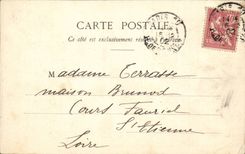 CARTE POSTALE
Ce côté est exclusivement réservé
Madame Terrasse
maison Brunod
Cours Fauriel
St Etienne
Loire